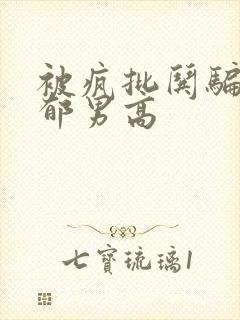 被疯批闺骗
郁男高
七寶琉璃1